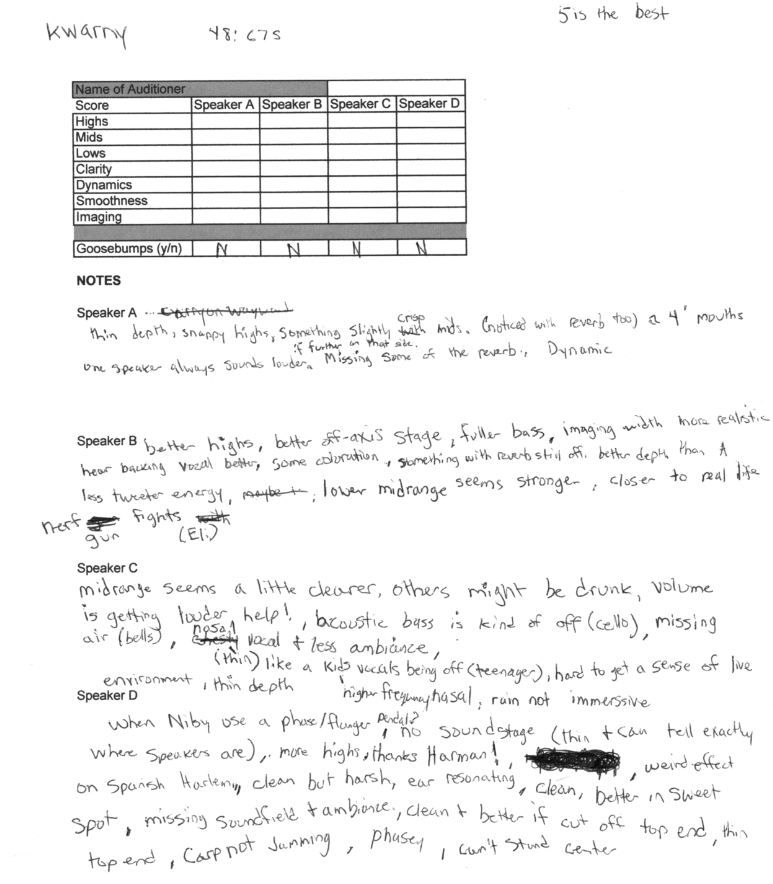 5 is the best
Kwarny 48:675
Name of Auditioner
Score Speaker A Speaker B Speaker C Speaker D
Highs
Mids
Lows
Clarity
Dynamics
Smoothness
Imaging
Goosebumps (y/n) N N N N
NOTES
Speaker A
crisp
thin depth, snappy highs, something slightly mids. (noticed with reverb too) a 4' mouths
if further on that side.
one speaker always sounds louder. Missing some of the reverb., Dynamic
Speaker B better highs, better off-axis stage, fuller bass, imaging width more realistic
hear backing vocal better, some coloration, something with reverb still off. better depth than A
less tweeter energy, maybe, lower midrange seems stronger, closer to real life
nerf fights with
gun (Eli)
Speaker C
midrange seems a little clearer, others might be drunk, volume
is getting louder help!, acoustic bass is kind of off (cello), missing
nasal
air (bells), vocal + less ambiance,
(thin) like a kids vocals being off (teenager), hard to get a sense of live
environment, thin depth higher frequency nasal, rain not immerssive
Speaker D
when Niby use a phase/flanger pendal?, no soundstage (thin + can tell exactly
where speakers are), more highs, thanks Harman!, weird effect
on Spanish Harlem, clean but harsh, ear resonating, clean, better in sweet
spot, missing soundfield + ambiance, clean + better if cut off top end, thin
top end, Carp not Jamming, phasey, can't stand center